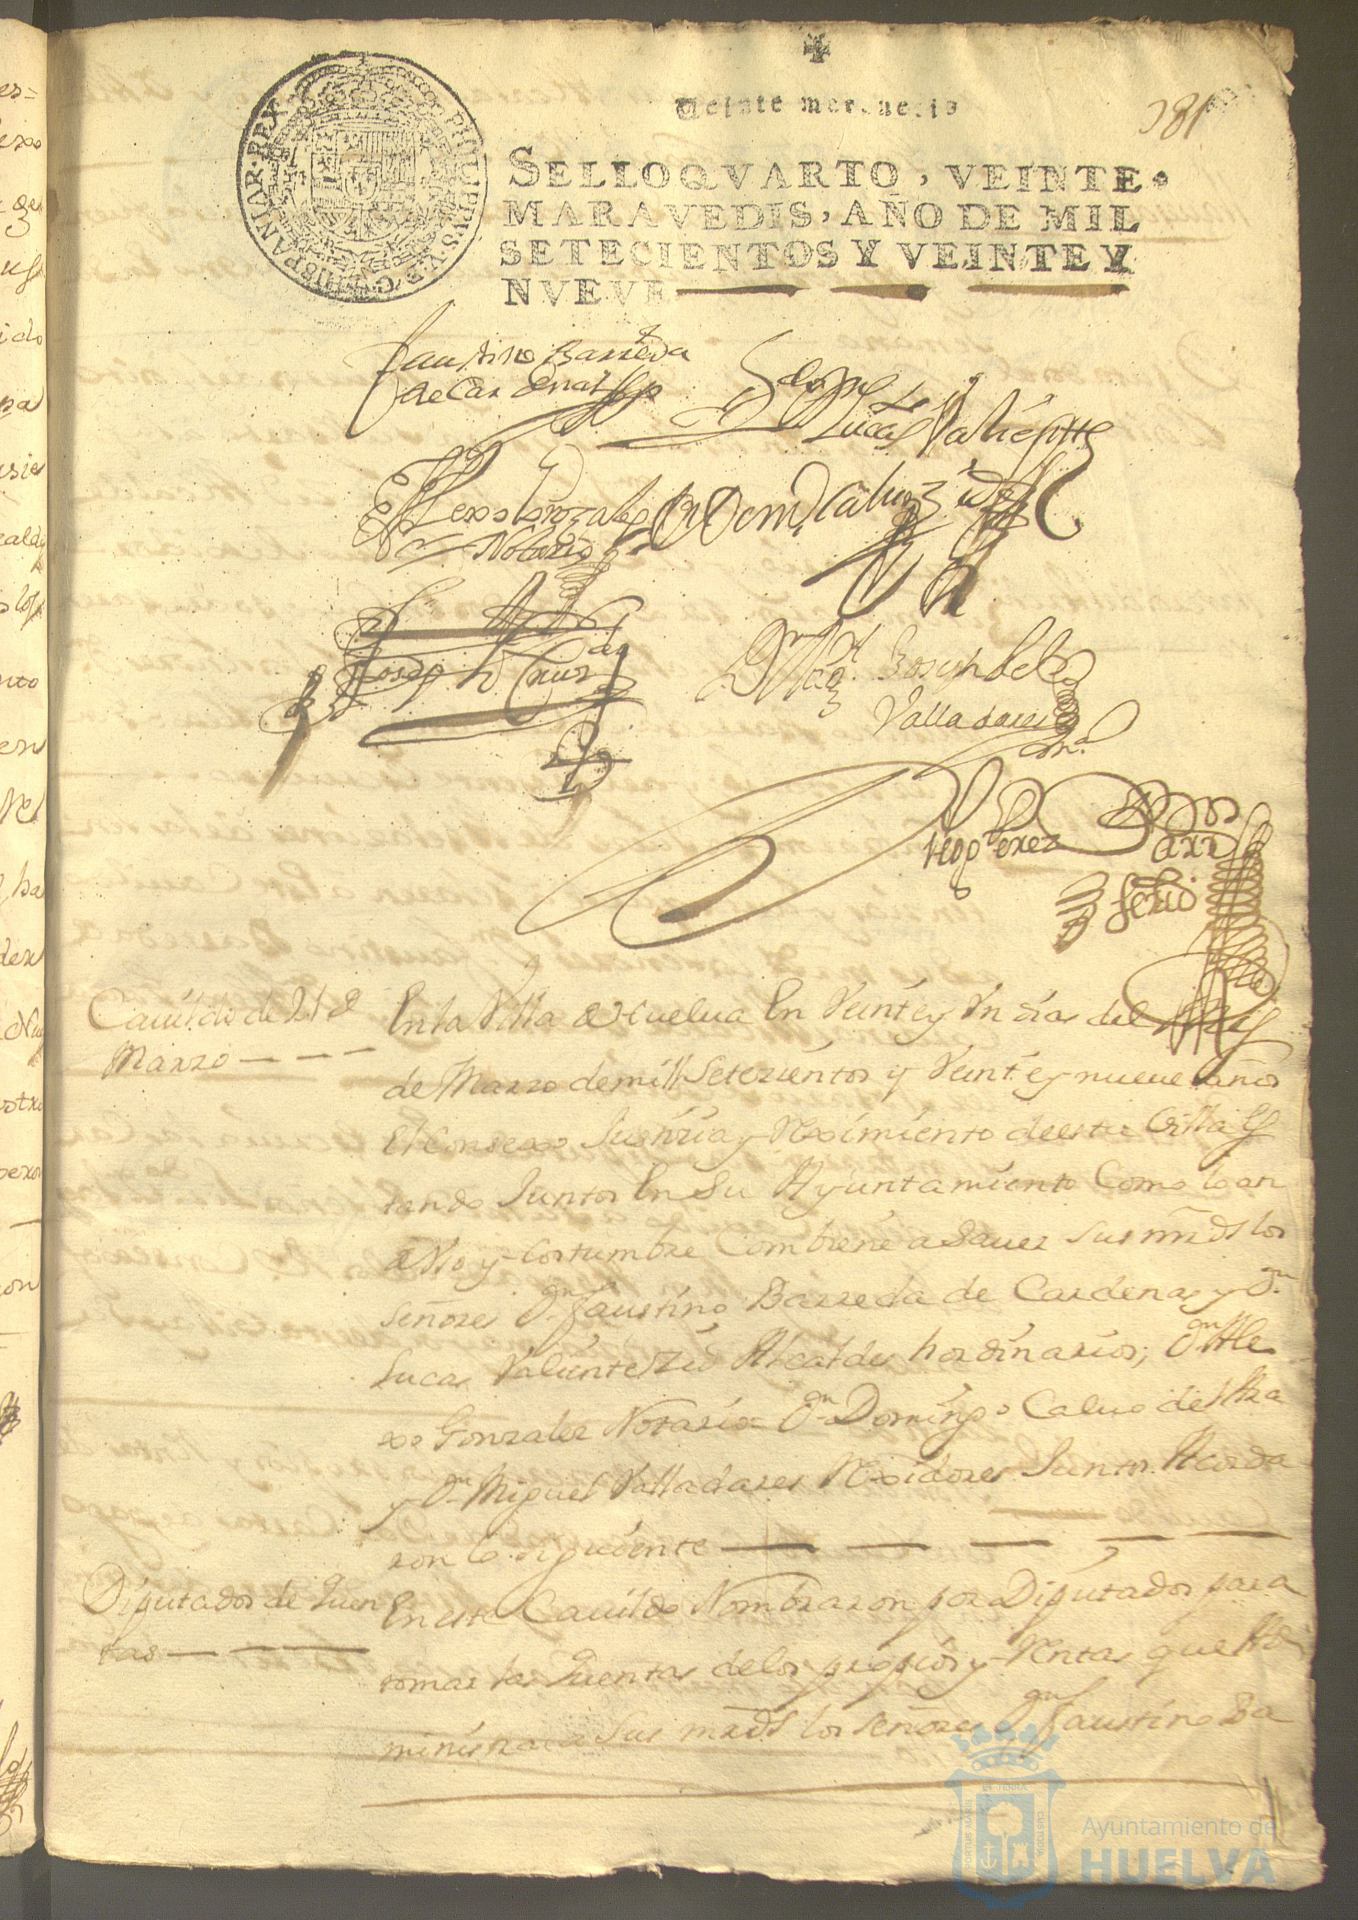 Veinte marauedis
381
PHILIPPVS·V·D·G·HISPANIAR·REX
SELLO QVARTO, VEINTE
MARAVEDIS, AÑO DE MIL
SETECIENTOS Y VEINTE Y
NVEVE
Faustino Barreda
de Cardenas
Lucas Valiente
Alexo Gonzalez
Notario
Domº Calvo
Joseph de la Cruz
Joseph de
Valladares
Diego Perez
Cauildo de 21 de
Marzo
En la Villa de Huelua En Veinte y Vn dias del Mes
de Marzo de mill Setezientos y Veinte y nueue años
El Consexo Justizia y Reximiento de esta Villa Es
tando Juntos En Su Ayuntamiento Como lo an
de Vso y Costumbre Combiene a Sauer Sus mrds los
Señores Dn Faustino Barreda de Cardenas y Dn
Lucas Valiente Alcaldes hordinarios; Dn Ale
xo Gonzalez Notario Dn Domingo Caluo de
y Dn Miguel Valladares Rexidores Juntos Acorda
ron lo siguiente
Diputados de Quen
tas
En este Cauildo Nombraron por Diputados para
tomar las Quentas de los propios y Rentas que Ad
ministra a Sus mrds los Señores Dn Faustino Ba
PORTUS MARIS
ET TERRAE
CUSTODIA
Ayuntamiento de
HUELVA